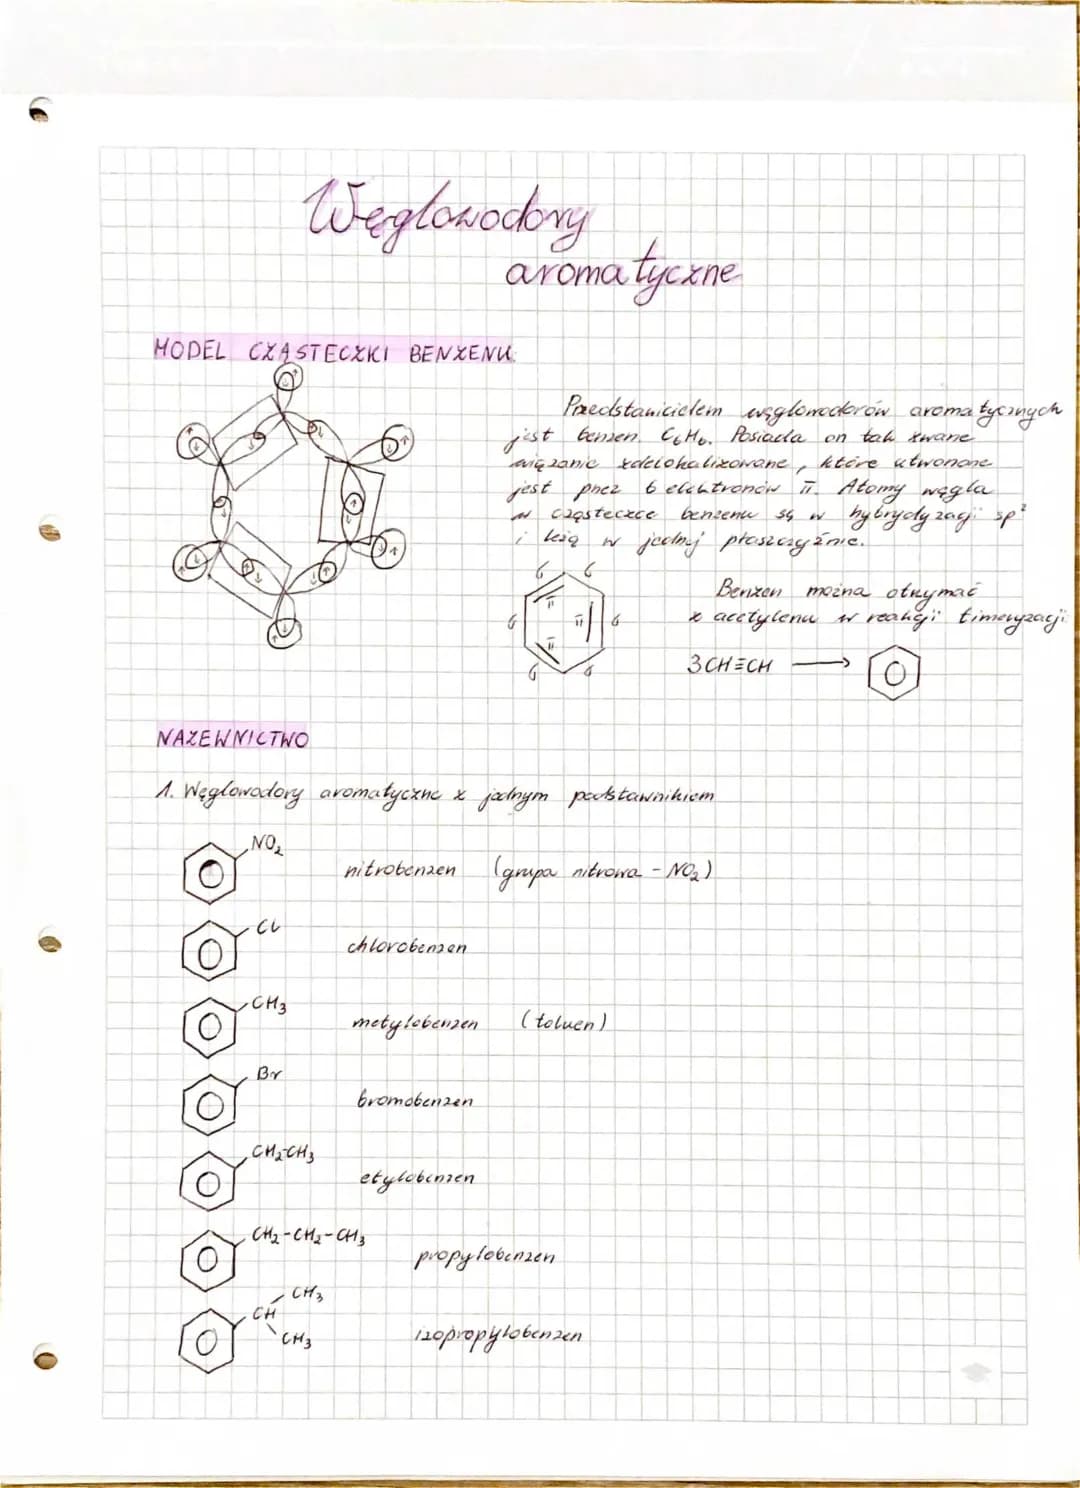 Węglowodory
aromatyczne
MODEL CZĄSTECZKI BENZENU:
Przedstawicielem węglowodorów aromatycznych
jest benzen C6H6. Posiada on tak zwane
wiązanie zdelokalizowane, które utworzone
jest przez 6 elektronów π. Atomy węgla
w cząsteczce benzenu są w hybrydyzacji sp²
i leżą w jednej płaszczyźnie.
Benzen można otrzymać
z acetylenu w reakcji timeryzacji
6 6
π
6 π 6
π
6 6
3CH≡CH ⟶
NAZEWNICTWO
1. Węglowodory aromatyczne z jednym podstawnikiem
NO2
nitrobenzen (grupa nitrowa - NO2)
Cl
chlorobenzen
CH3
metylobenzen (toluen)
Br
bromobenzen
CH2-CH3
etylobenzen
CH2-CH2-CH3
propylobenzen
CH3
CH
CH3
izopropylobenzen